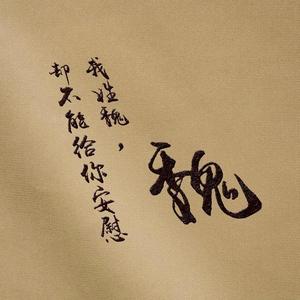 我姓魏，
却不能给你安慰
魏